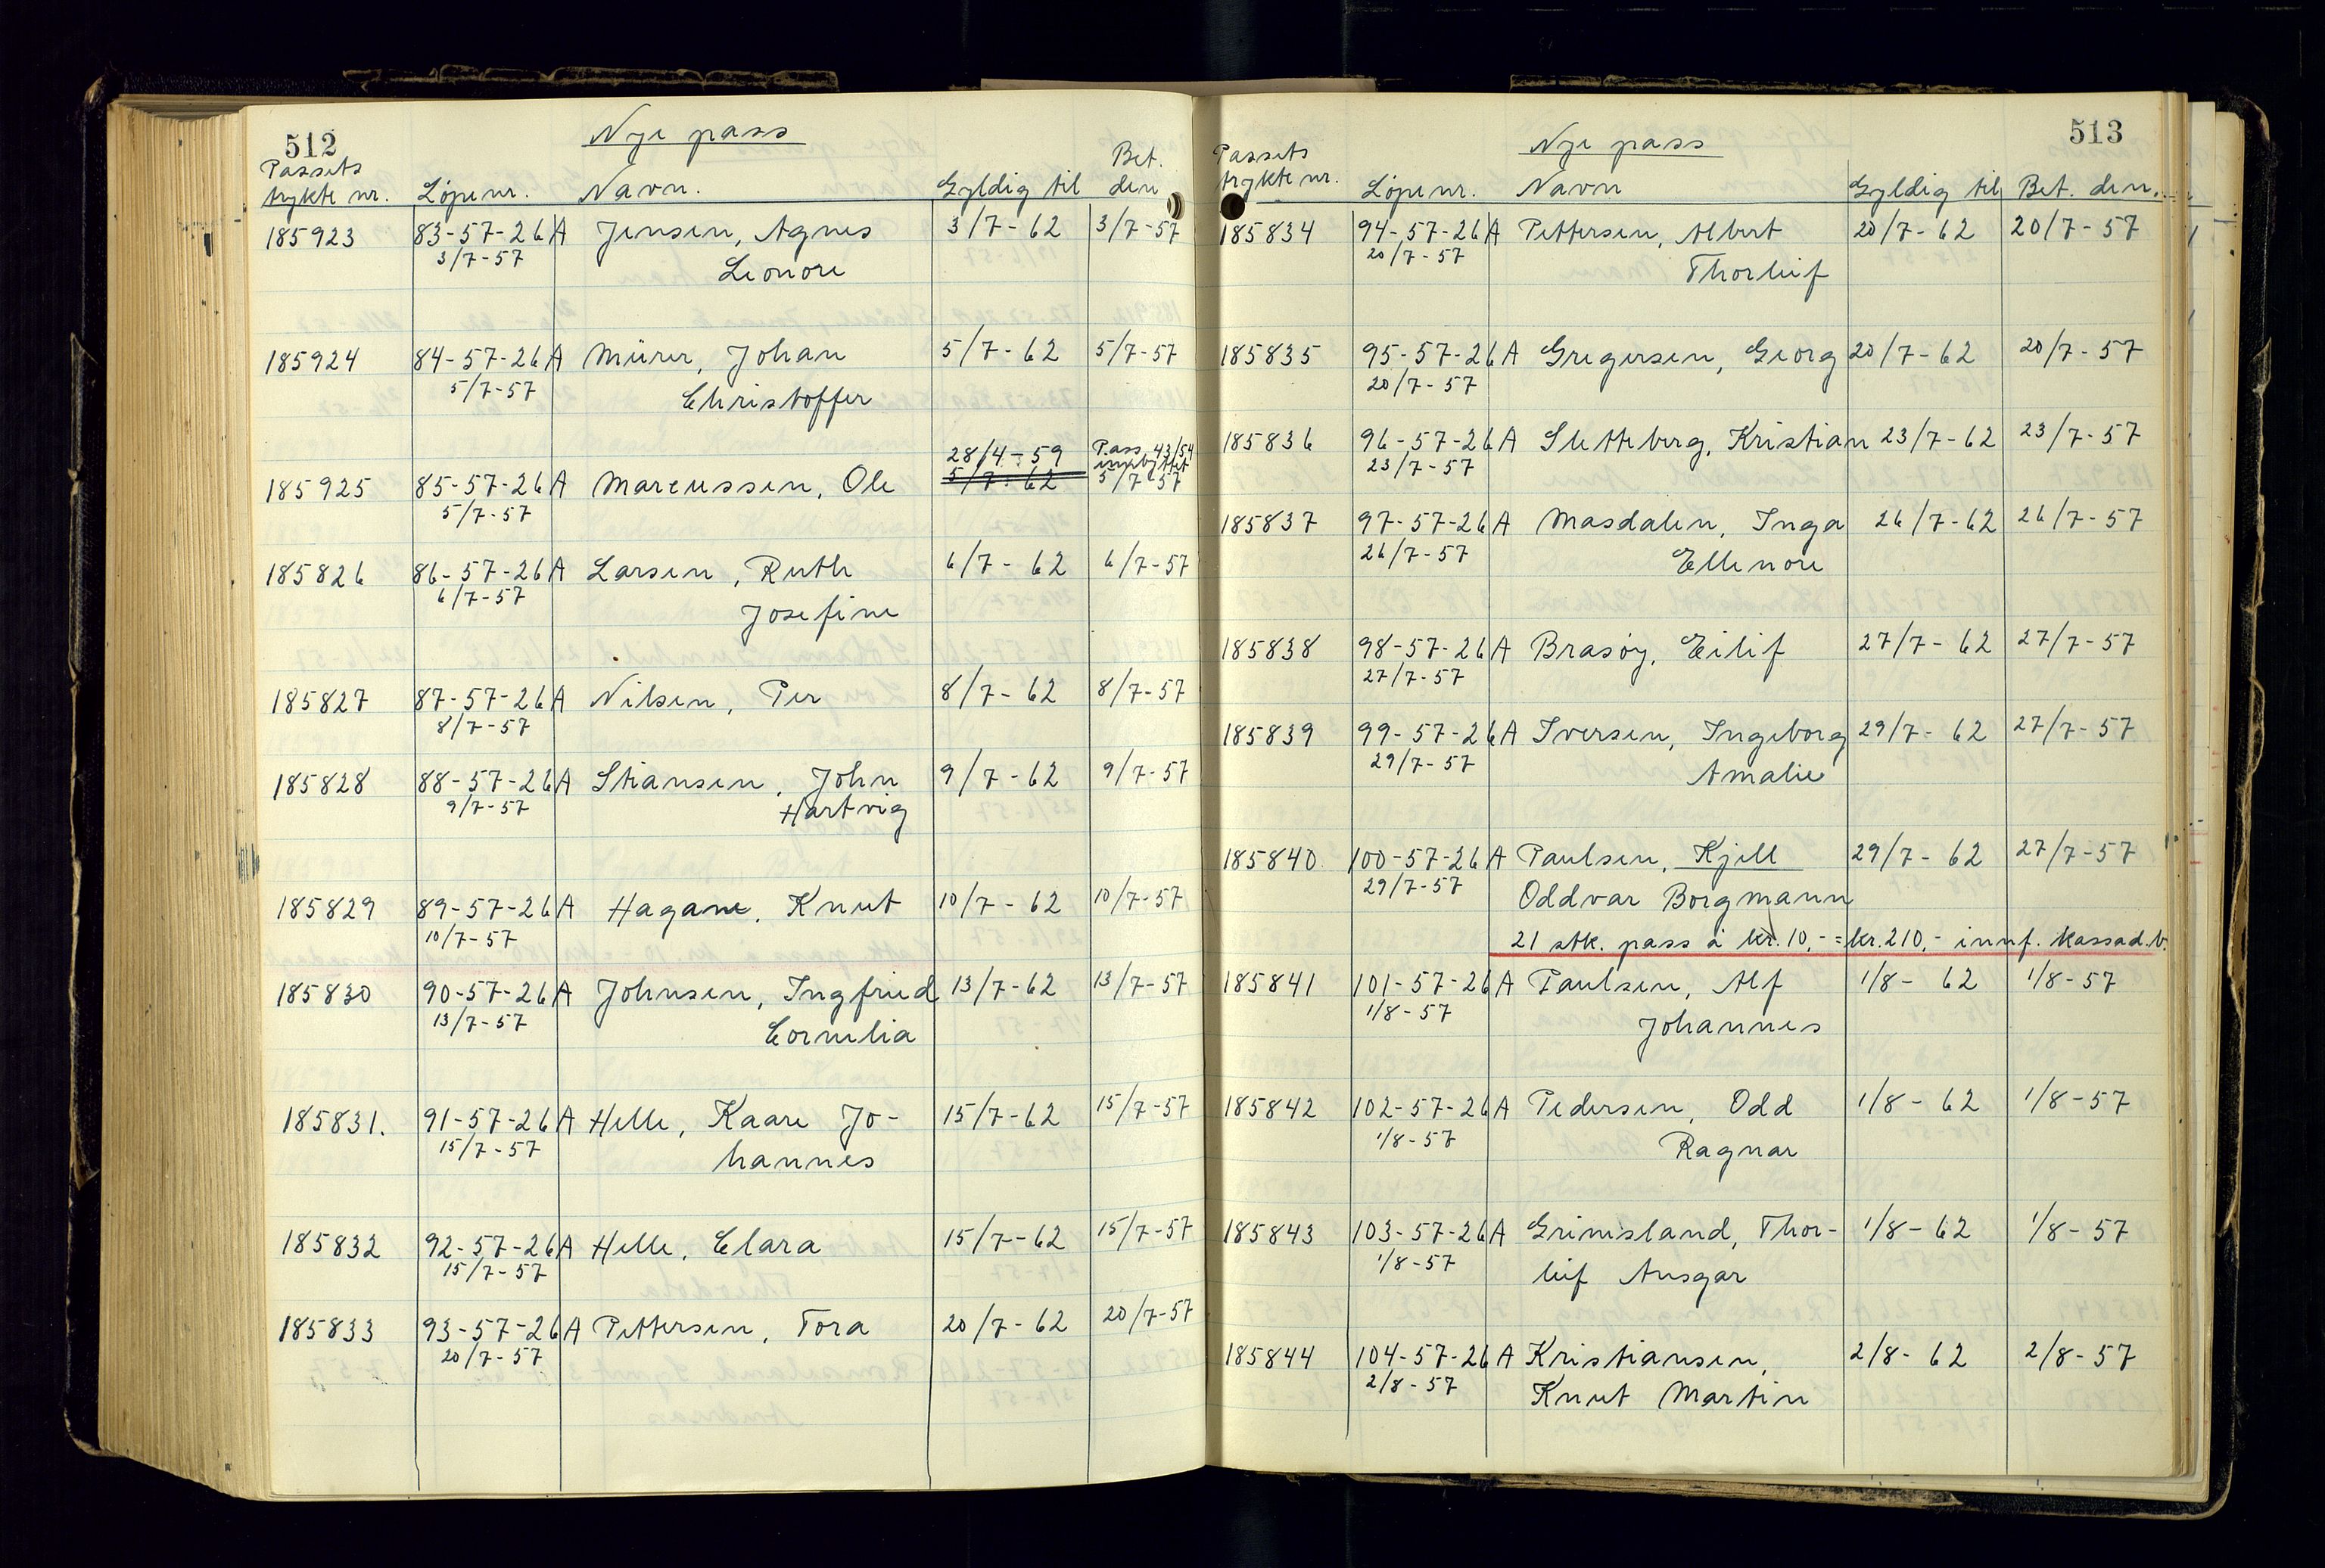 512
Nye pass
Passets
trykte nr. Löpenr. Navn. Gyldig til Bet. den
185923 83-57-26A Jensen, Agnes 3/7-62 3/7-57
3/7-57 Leonore
185924 84-57-26A Mürer, Johan 5/7-62 5/7-57
5/7-57 Christoffer
28/4-59 Pass 43/54
innbyttet
185925 85-57-26A Marcussen, Ole 5/7-62 5/7-57
5/7-57
185826 86-57-26A Larsen, Ruth 6/7-62 6/7-57
6/7-57 Josefine
185827 87-57-26A Nilsen, Per 8/7-62 8/7-57
8/7-57
185828 88-57-26A Stiansen, John 9/7-62 9/7-57
9/7-57 Hartvig
185829 89-57-26A Hagane, Knut 10/7-62 10/7-57
10/7-57
185830 90-57-26A Johnsen, Ingfried 13/7-62 13/7-57
13/7-57 Cornelia
185831. 91-57-26A Helle, Kaare Jo- 15/7-62 15/7-57
15/7-57 hannes
185832 92-57-26A Helle, Clara 15/7-62 15/7-57
15/7-57
185833 93-57-26A Pettersen, Tora 20/7-62 20/7-57
20/7-57
513
Nye pass
Passets
trykte nr. Löpenr. Navn Gyldig til Bet. den.
185834 94-57-26A Pettersen, Albert 20/7-62 20/7-57
20/7-57 Thorleif
185835 95-57-26A Gregersen, Georg 20/7-62 20/7-57
20/7-57
185836 96-57-26A Sletteberg, Kristian 23/7-62 23/7-57
23/7-57
185837 97-57-26A Masdalen, Inga 26/7-62 26/7-57
26/7-57 Ellenore
185838 98-57-26A Brasöy, Eilif 27/7-62 27/7-57
27/7-57
185839 99-57-26A Iversen, Ingeborg 29/7-62 27/7-57
29/7-57 Amalie
185840 100-57-26A Paulsen, Kjell 29/7-62 27/7-57
29/7-57 Oddvar Borgmann
21 stk. pass á kr. 10,- = kr. 210,- innf. kassad.b.
185841 101-57-26A Paulsen, Alf 1/8-62 1/8-57
1/8-57 Johannes
185842 102-57-26A Pedersen, Odd 1/8-62 1/8-57
1/8-57 Ragnar
185843 103-57-26A Grimsland, Thor- 1/8-62 1/8-57
1/8-57 leif Ansgar
185844 104-57-26A Kristiansen, 2/8-62 2/8-57
2/8-57 Knut Martin